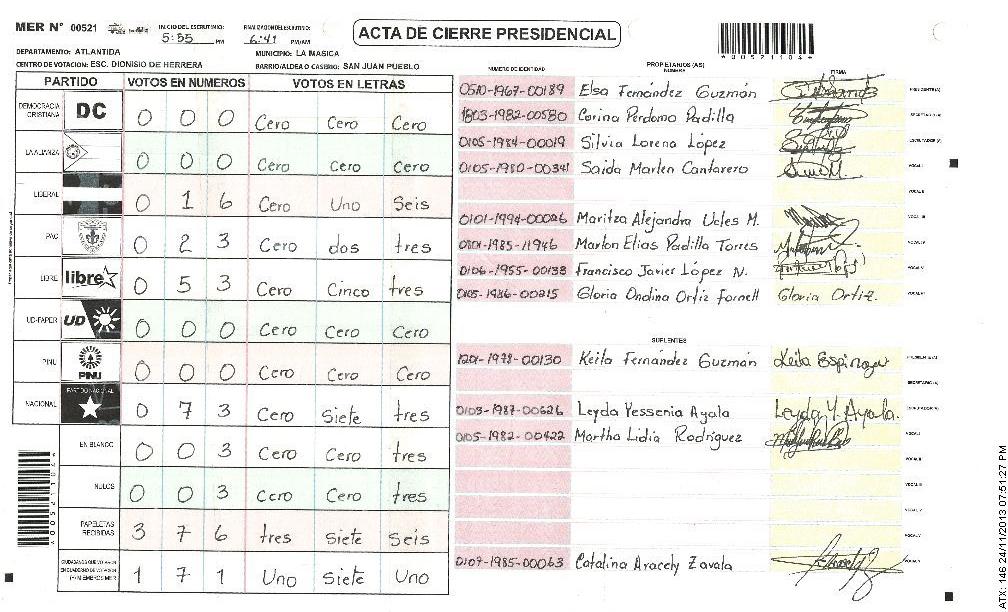 MER N° 00521
INICIO DEL ESCRUTINIO:
5:55 PM
FINALIZACION DEL ESCRUTINIO:
6:41 PM/AM
ACTA DE CIERRE PRESIDENCIAL
*00521104*
DEPARTAMENTO: ATLANTIDA
MUNICIPIO: LA MASICA
CENTRO DE VOTACION: ESC. DIONISIO DE HERRERA
BARRIO/ALDEA O CASERIO: SAN JUAN PUEBLO
PARTIDO VOTOS EN NUMEROS VOTOS EN LETRAS
DEMOCRACIA CRISTIANA DC 0 0 0 Cero Cero Cero
LA ALIANZA 0 0 0 Cero Cero Cero
LIBERAL 0 1 6 Cero Uno Seis
PAC 0 2 3 Cero dos tres
LIBRE libre 0 5 3 Cero Cinco tres
UD-FAPER UD 0 0 0 Cero Cero Cero
PINU PINU 0 0 0 Cero Cero Cero
NACIONAL PARTIDO NACIONAL 0 7 3 Cero Siete tres
EN BLANCO 0 0 3 Cero Cero tres
NULOS 0 0 3 Cero Cero tres
PAPELETAS RECIBIDAS 3 7 6 tres Siete Seis
CIUDADANOS QUE VOTARON EN CUADERNO DE VOTACION (+) MIEMBROS MER 1 7 1 Uno Siete Uno
*00521104*
NUMERO DE IDENTIDAD PROPIETARIOS (AS) NOMBRE FIRMA
0510-1967-00189 Elsa Fernández Guzmán PRESIDENTE(A)
1803-1982-00580 Corina Perdomo Padilla SECRETARIO(A)
0105-1984-00019 Silvia Lorena López ESCRUTADOR(A)
0105-1980-00341 Saida Marlen Cantarero VOCAL I
VOCAL II
0101-1994-00026 Maritza Alejandra Veles M. VOCAL III
0801-1985-11946 Marlon Elias Padilla Torres VOCAL IV
0106-1955-00138 Francisco Javier López N. VOCAL V
0105-1986-00215 Gloria Ondina Ortiz Fornell Gloria Ortiz. VOCAL VI
SUPLENTES
1201-1978-00130 Keila Fernández Guzmán Keila Espinoza PRESIDENTE(A)
SECRETARIO(A)
0103-1987-00626 Leyda Yessenia Ayala Leyda Y. Ayala. ESCRUTADOR(A)
0105-1982-00422 Martha Lidia Rodríguez VOCAL I
VOCAL II
VOCAL III
VOCAL IV
VOCAL V
0107-1985-00063 Catalina Aracely Zavala VOCAL VI
ATX: 146 24/11/2013 07:51:27 PM